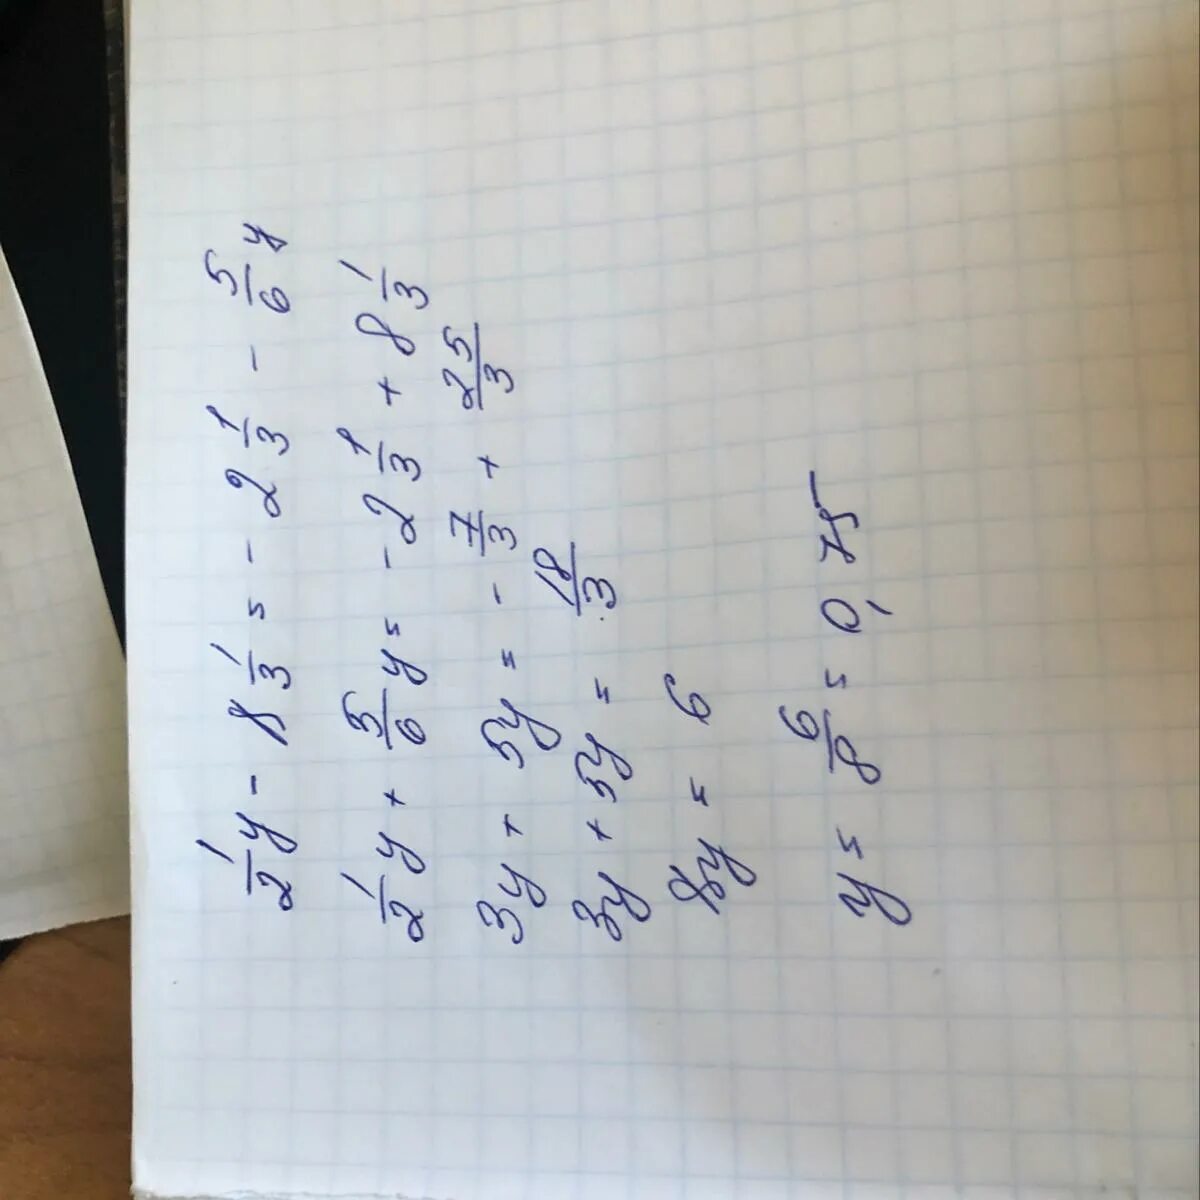 1/2 y - 8 1/3 = - 2 1/3 - 5/6 y
1/2 y + 5/6 y = - 2 1/3 + 8 1/3
3y + 5y = - 7/3 + 25/3
3y + 5y = 18/3
8y = 6
y = 6/8 = 0,75